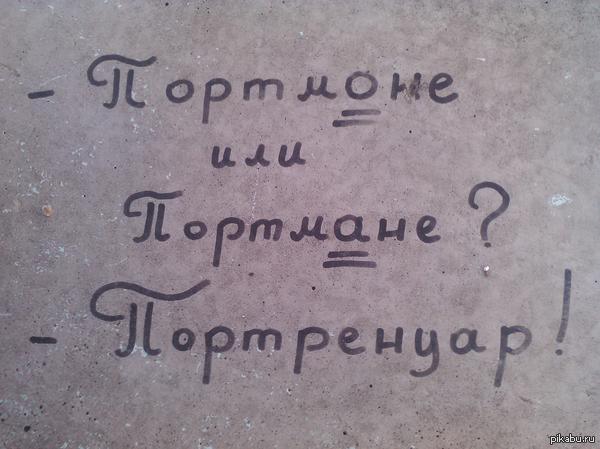 - Портмоне
или
Портмане?
- Портренуар!
pikabu.ru